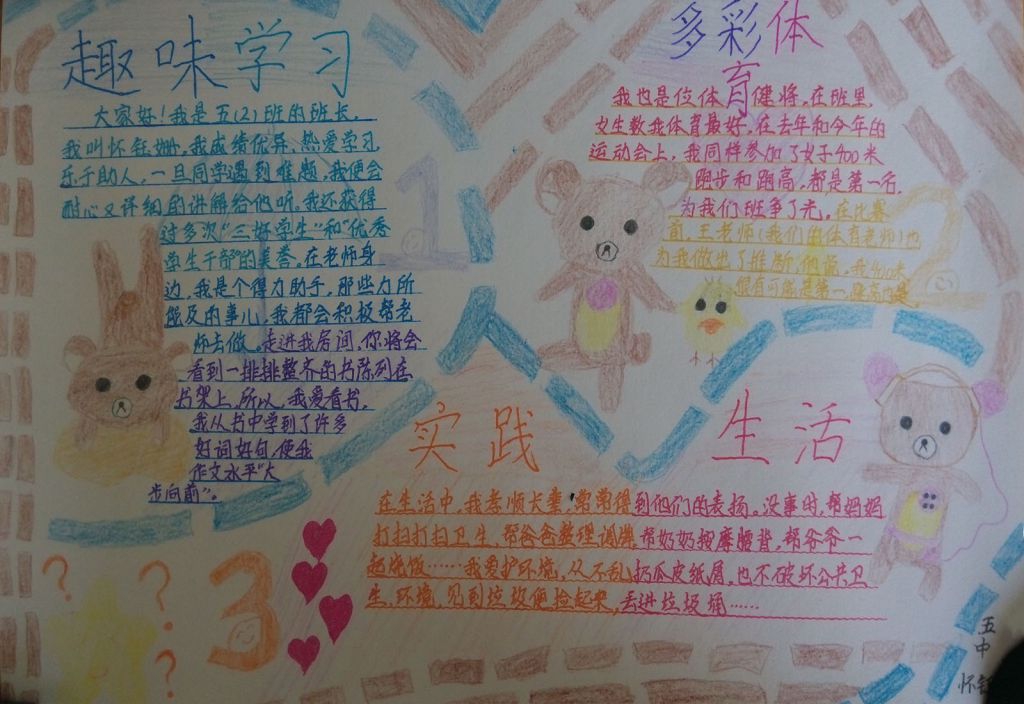 趣味学习
大家好！我是五(2)班的班长，
我叫怀钰姗，我成绩优异、热爱学习、
乐于助人，一旦同学遇到难题，我便会
耐心又详细的讲解给他听，我还获得
过多次“三好学生”和“优秀
学生干部”的美誉。在老师身
边，我是个得力助手，那些力所
能及的事儿，我都会积极帮老
师去做。走进我房间，你将会
看到一排排整齐的书陈列在
书架上，所以，我爱看书。
我从书中学到了许多
好词好句，使我
作文水平“大
步向前”。
1
多彩体
育
我也是位体育健将，在班里，
女生数我体育最好，在去年和今年的
运动会上，我同样参加了女子400米
跑步和跳高，都是第一名，
为我们班争了光。在比赛
前，王老师(我们的体育老师)也
为我做出了推断，他说，我400米
很有可能是第一，跳高也是。
2
实践生活
在生活中，我孝顺长辈，常常得到他们的表扬。没事时，帮妈妈
打扫打扫卫生，帮爸爸整理调满，帮奶奶按摩腰背，帮爷爷一
起烧饭……我爱护环境，从不乱扔瓜皮纸屑，也不破坏公共卫
生、环境，见到垃圾便捡起来，丢进垃圾桶……
3
? ? ? ?
五
中
怀钰